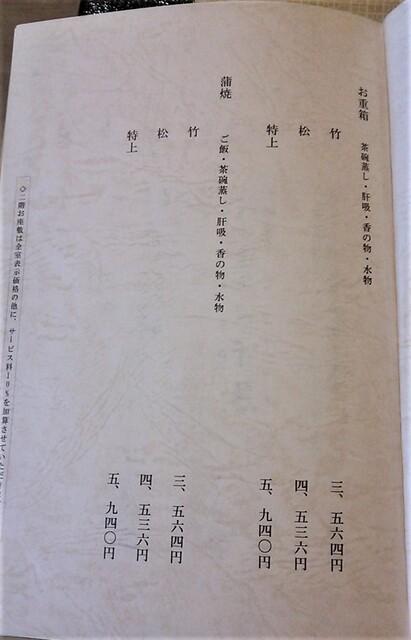 お重箱 茶碗蒸し・肝吸・香の物・水物
竹 三、五六四円
松 四、五三六円
特上 五、九四〇円
蒲焼 ご飯・茶碗蒸し・肝吸・香の物・水物
竹 三、五六四円
松 四、五三六円
特上 五、九四〇円
◎二階お座敷は全室表示価格の他に、サービス料10%を加算させていただ